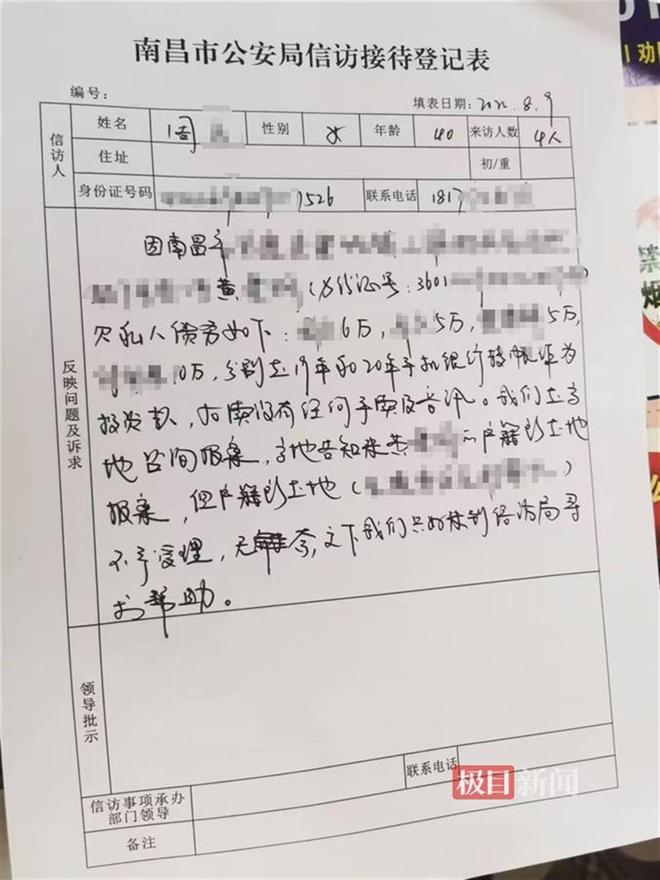 南昌市公安局信访接待登记表
编号: 填表日期: 2022.8.9
信访人
姓名 周 性别 女 年龄 40 来访人数 4人
住址 初/重
身份证号码 7526 联系电话 1817
反映问题及诉求
因南昌市
黄 (身份证号:3601
欠私人债务如下: 6万, 5万, 5万,
10万,分别在19年和20年手机银行转帐作为
投资款,后来没有任何手续及音讯。我们在当
地公安局报案,当地告知来 户籍所在地
报案,但户籍所在地( )
不予受理,无奈之下我们只好来到信访局寻
求帮助。
领导批示
联系电话
信访事项承办
部门领导
备注
极目新闻
劝
禁
烟